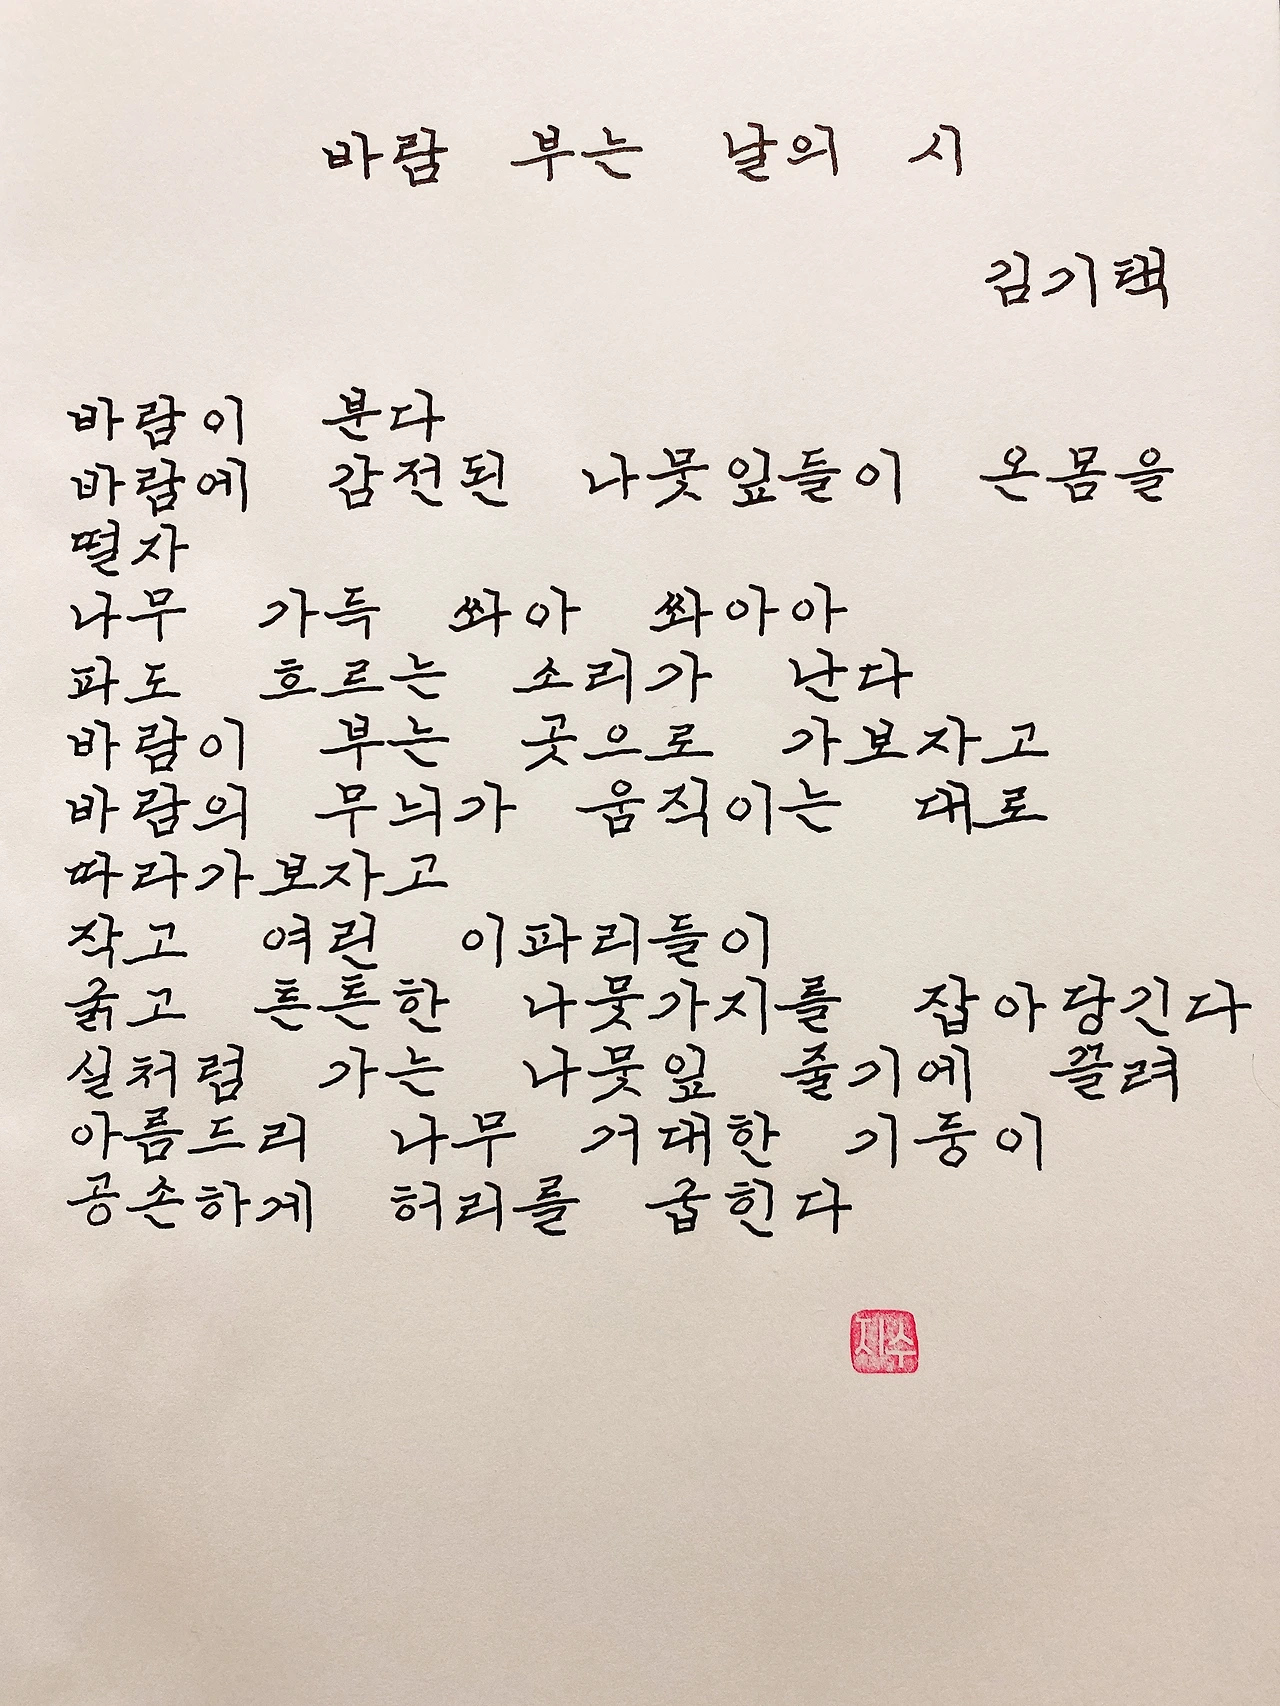 바람 부는 날의 시
김기택
바람이 분다
바람에 감전된 나뭇잎들이 온몸을
떨자
나무 가득 쏴아 쏴아아
파도 흐르는 소리가 난다
바람이 부는 곳으로 가보자고
바람의 무늬가 움직이는 대로
따라가보자고
작고 여린 이파리들이
굵고 튼튼한 나뭇가지를 잡아당긴다
실처럼 가는 나뭇잎 줄기에 끌려
아름드리 나무 거대한 기둥이
공손하게 허리를 굽힌다
지수